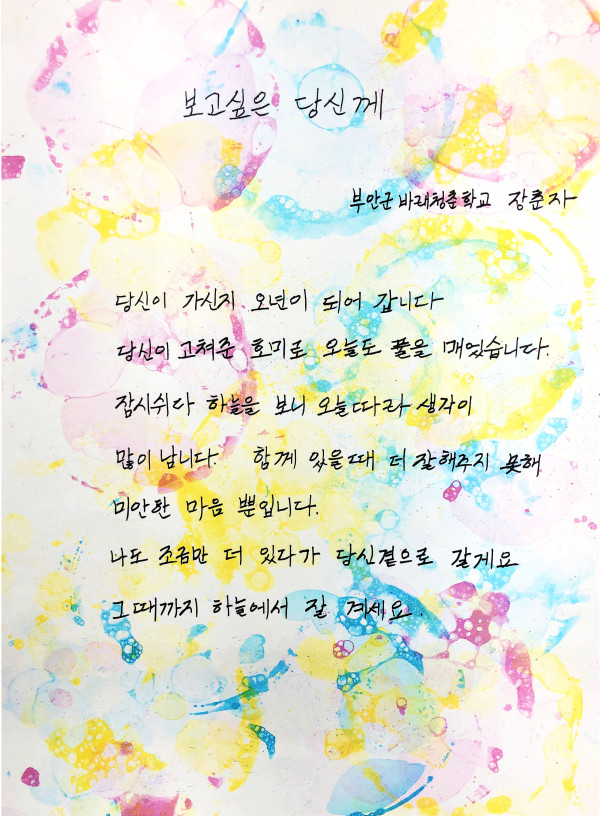 보고싶은 당신께
부안군 바래청춘학교 장춘자
당신이 가신지 오년이 되어 갑니다
당신이 고쳐준 호미로 오늘도 풀을 매었습니다.
잠시쉬다 하늘을 보니 오늘따라 생각이
많이 납니다. 함께 있을때 더 잘해주지 못해
미안한 마음 뿐입니다.
나도 조금만 더 있다가 당신곁으로 갈게요
그때까지 하늘에서 잘 계세요.